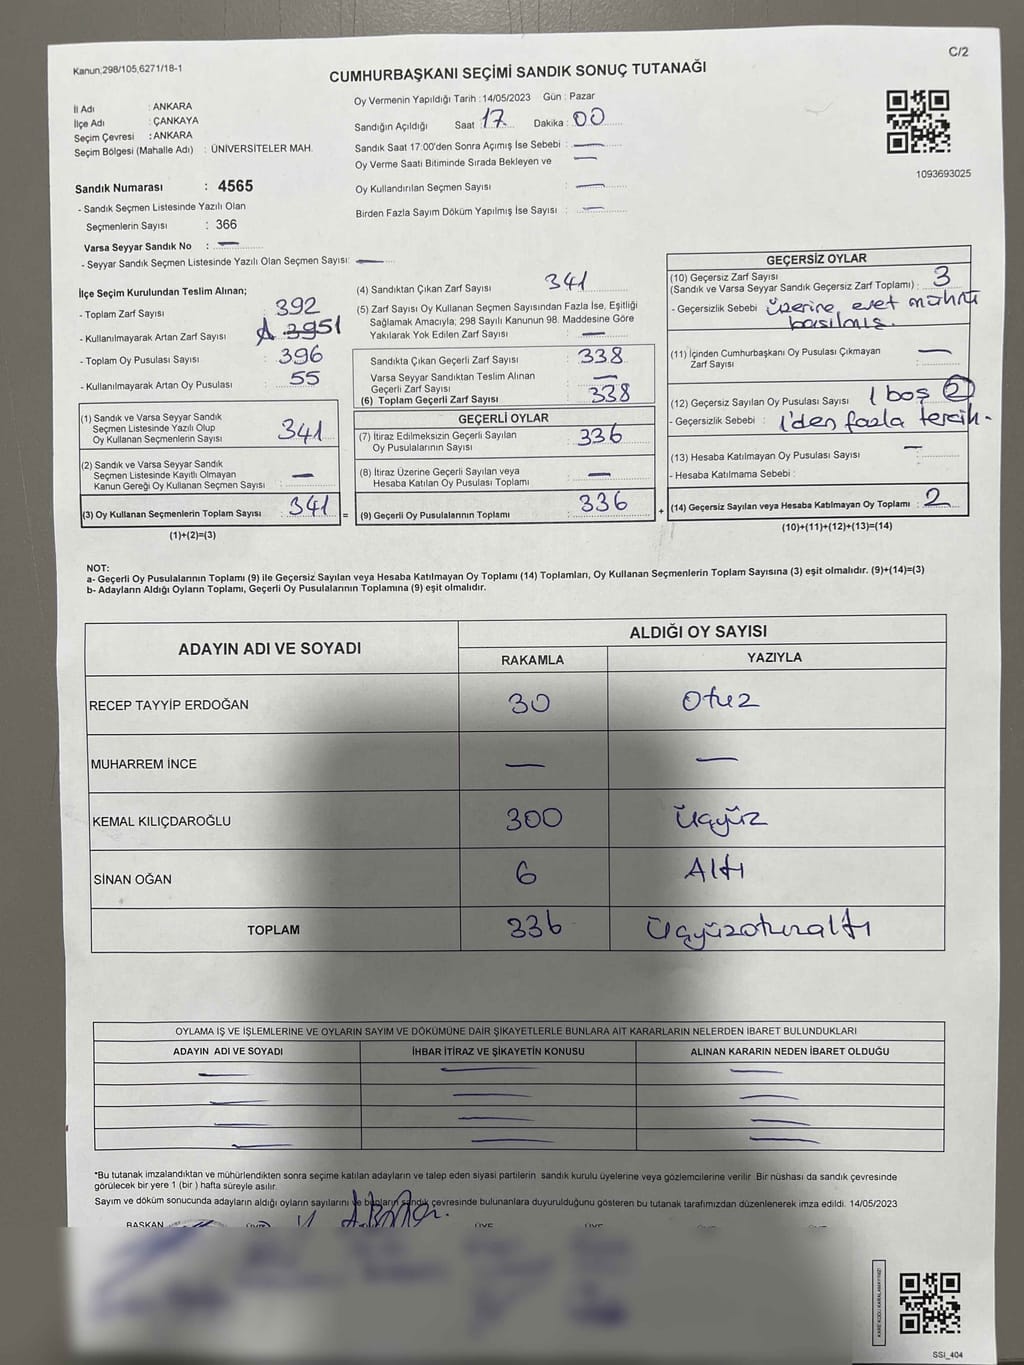 Kanun,298/105,6271/18-1
C/2
CUMHURBAŞKANI SEÇİMİ SANDIK SONUÇ TUTANAĞI
İl Adı : ANKARA
İlçe Adı : ÇANKAYA
Seçim Çevresi : ANKARA
Seçim Bölgesi (Mahalle Adı) : ÜNİVERSİTELER MAH.
Oy Vermenin Yapıldığı Tarih : 14/05/2023 Gün : Pazar
Sandığın Açıldığı Saat 17 Dakika : 00
Sandık Saat 17:00'den Sonra Açımış İse Sebebi : —
Oy Verme Saati Bitiminde Sırada Bekleyen ve —
Oy Kullandırılan Seçmen Sayısı : —
Birden Fazla Sayım Döküm Yapılmış İse Sayısı : —
1093693025
Sandık Numarası : 4565
- Sandık Seçmen Listesinde Yazılı Olan
Seçmenlerin Sayısı : 366
Varsa Seyyar Sandık No : —
- Seyyar Sandık Seçmen Listesinde Yazılı Olan Seçmen Sayısı: —
İlçe Seçim Kurulundan Teslim Alınan;
- Toplam Zarf Sayısı 392
- Kullanılmayarak Artan Zarf Sayısı 51
- Toplam Oy Pusulası Sayısı : 396
- Kullanılmayarak Artan Oy Pusulası : 55
(1) Sandık ve Varsa Seyyar Sandık
Seçmen Listesinde Yazılı Olup
Oy Kullanan Seçmenlerin Sayısı : 341
(2) Sandık ve Varsa Seyyar Sandık
Seçmen Listesinde Kayıtlı Olmayan
Kanun Gereği Oy Kullanan Seçmen Sayısı : —
(3) Oy Kullanan Seçmenlerin Toplam Sayısı : 341
(1)+(2)=(3)
(4) Sandıktan Çıkan Zarf Sayısı : 341
(5) Zarf Sayısı Oy Kullanan Seçmen Sayısından Fazla İse, Eşitliği
Sağlamak Amacıyla; 298 Sayılı Kanunun 98. Maddesine Göre
Yakılarak Yok Edilen Zarf Sayısı : —
Sandıkta Çıkan Geçerli Zarf Sayısı : 338
Varsa Seyyar Sandıktan Teslim Alınan
Geçerli Zarf Sayısı : —
(6) Toplam Geçerli Zarf Sayısı : 338
GEÇERLİ OYLAR
(7) İtiraz Edilmeksizin Geçerli Sayılan
Oy Pusulalarının Sayısı : 336
(8) İtiraz Üzerine Geçerli Sayılan veya
Hesaba Katılan Oy Pusulası Toplamı : —
= (9) Geçerli Oy Pusulalarının Toplamı : 336
GEÇERSİZ OYLAR
(10) Geçersiz Zarf Sayısı
(Sandık ve Varsa Seyyar Sandık Geçersiz Zarf Toplamı) : 3
- Geçersizlik Sebebi : üzerine evet mührü
basılmış.
(11) İçinden Cumhurbaşkanı Oy Pusulası Çıkmayan
Zarf Sayısı : —
(12) Geçersiz Sayılan Oy Pusulası Sayısı : 1 boş 2
- Geçersizlik Sebebi : 1'den fazla tercih.
(13) Hesaba Katılmayan Oy Pusulası Sayısı : —
- Hesaba Katılmama Sebebi :
+ (14) Geçersiz Sayılan veya Hesaba Katılmayan Oy Toplamı : 2
(10)+(11)+(12)+(13)=(14)
NOT:
a- Geçerli Oy Pusulalarının Toplamı (9) ile Geçersiz Sayılan veya Hesaba Katılmayan Oy Toplamı (14) Toplamları, Oy Kullanan Seçmenlerin Toplam Sayısına (3) eşit olmalıdır. (9)+(14)=(3)
b- Adayların Aldığı Oyların Toplamı, Geçerli Oy Pusulalarının Toplamına (9) eşit olmalıdır.
ADAYIN ADI VE SOYADI
ALDIĞI OY SAYISI
RAKAMLA YAZIYLA
RECEP TAYYİP ERDOĞAN 30 Otuz
MUHARREM İNCE — —
KEMAL KILIÇDAROĞLU 300 Üçyüz
SİNAN OĞAN 6 Altı
TOPLAM 336 Üçyüzotuzaltı
OYLAMA İŞ VE İŞLEMLERİNE VE OYLARIN SAYIM VE DÖKÜMÜNE DAİR ŞİKAYETLERLE BUNLARA AİT KARARLARIN NELERDEN İBARET BULUNDUKLARI
ADAYIN ADI VE SOYADI İHBAR İTİRAZ VE ŞİKAYETİN KONUSU ALINAN KARARIN NEDEN İBARET OLDUĞU
*Bu tutanak imzalandıktan ve mühürlendikten sonra seçime katılan adayların ve talep eden siyasi partilerin sandık kurulu üyelerine veya gözlemcilerine verilir. Bir nüshası da sandık çevresinde
görülecek bir yere 1 (bir ) hafta süreyle asılır.
Sayım ve döküm sonucunda adayların aldığı oyların sayılarını ve bunların sandık çevresinde bulunanlara duyurulduğunu gösteren bu tutanak tarafımızdan düzenlenerek imza edildi. 14/05/2023
BAŞKAN ÜYE ÜYE
KARE KODU KARALAMAYINIZ!
SSI_404